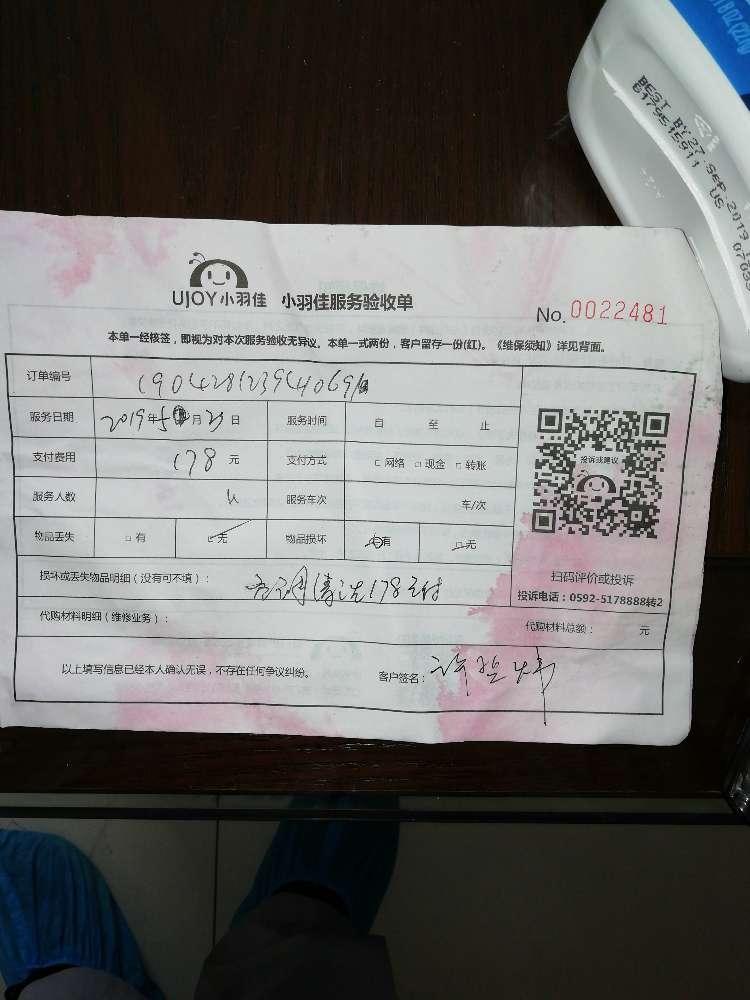 18OZ(220
BEST BY 27 SEP 2019
6179515911 US 07039
UJOY小羽佳 小羽佳服务验收单
No. 0022481
本单一经核签，即视为对本次服务验收无异议。本单一式两份，客户留存一份(红)。《维保须知》详见背面。
订单编号
服务日期 2019年5月29日 服务时间 自 至 止
支付费用 178 元 支付方式 □网络 □现金 □转账
投诉或建议
服务人数 服务车次 车/次
物品丢失 □有 □无 物品损坏 □有 □无
扫码评价或投诉
损坏或丢失物品明细（没有可不填）： 空调清洗178支付
投诉电话：0592-5178888转2
代购材料明细（维修业务）： 代购材料总额： 元
以上填写信息已经本人确认无误，不存在任何争议纠纷。 客户签名：